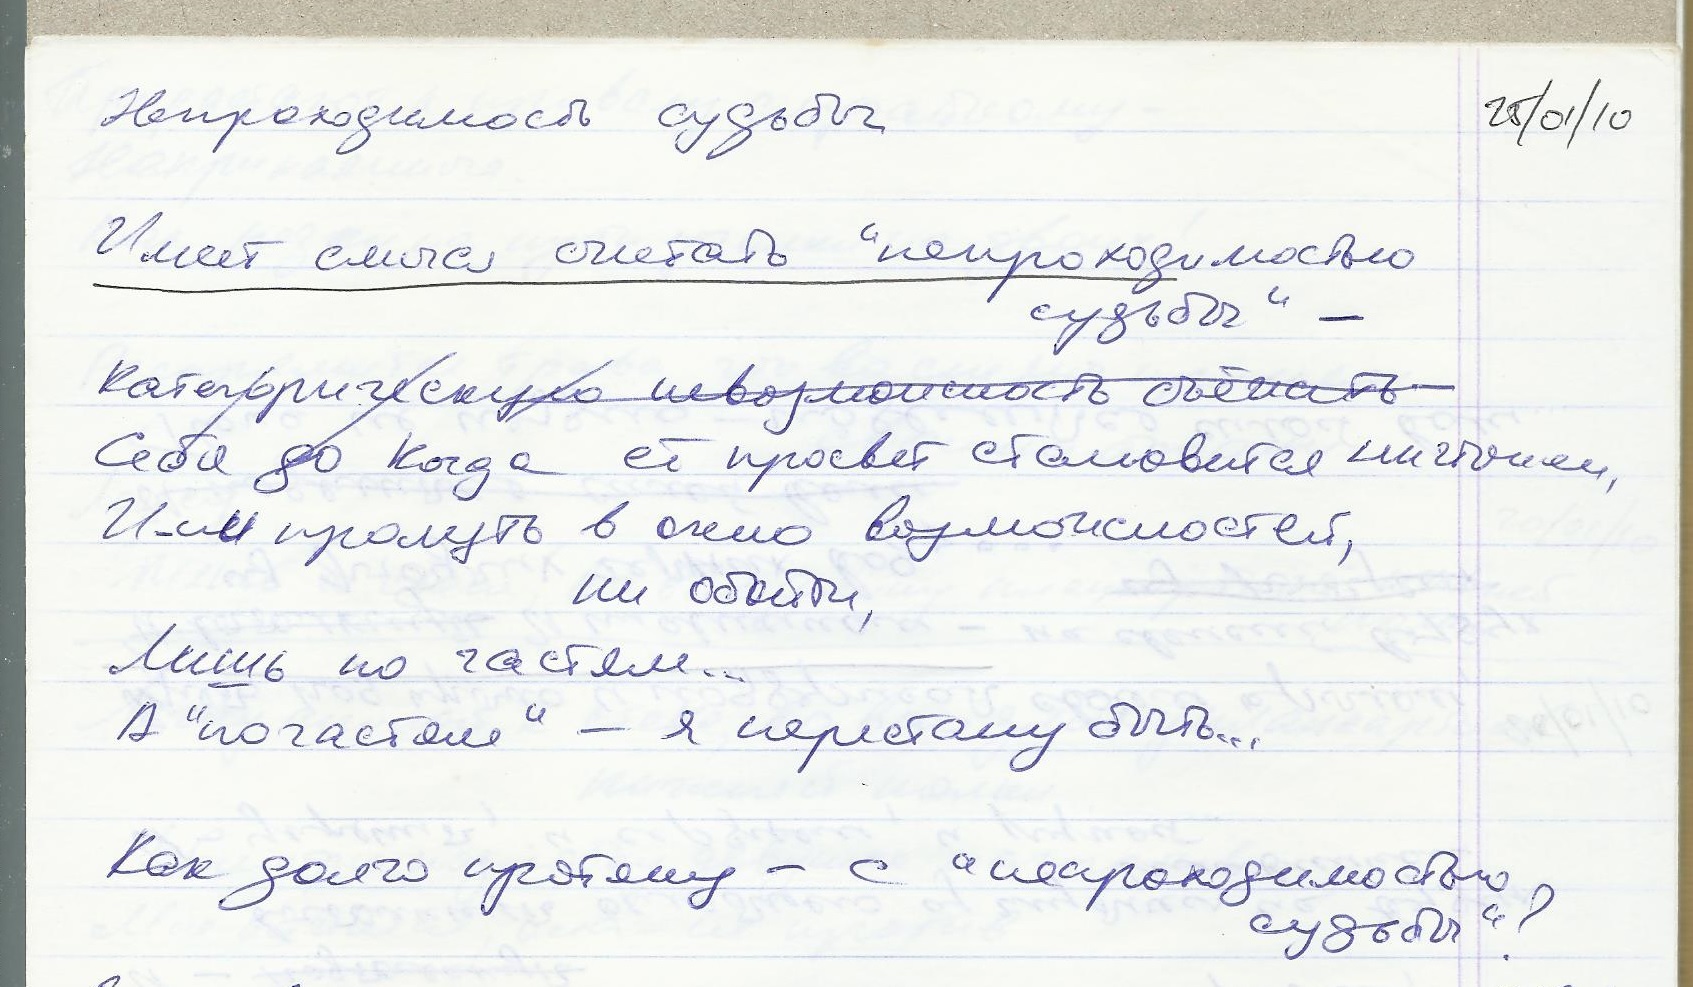 Непроходимость судьбы 25/01/10
Имеет смысл считать "непроходимостью
судьбы" –
категорическую невозможность съёжать
Себя до когда её просвет становится ничтожен,
И-ли прольуть в окно возможностей,
ни обойти,
Лишь по частям...
А "по частям" – я перестану быть...
Как долго протяну – с "непроходимостью
судьбы"?